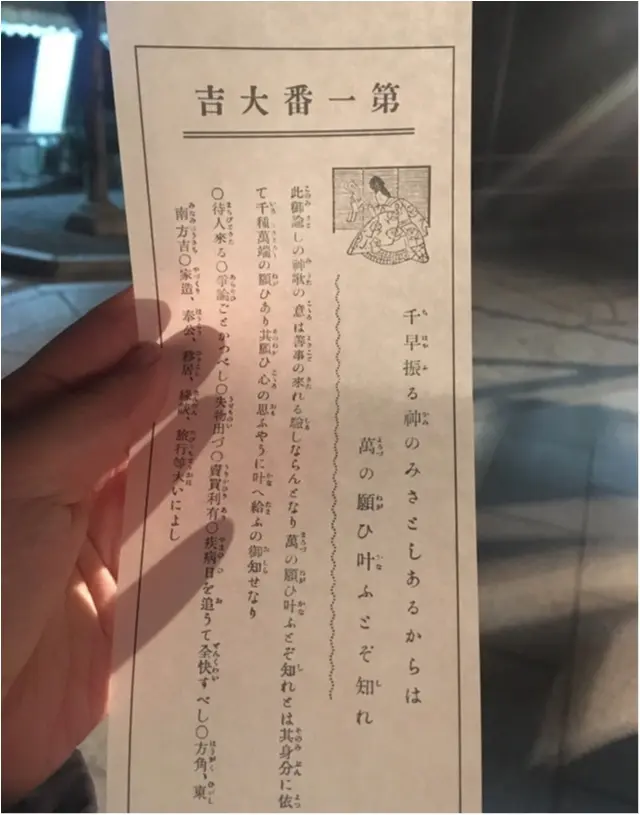 第一番大吉
千早振る神のみさとしあるからは
萬の願ひ叶ふとぞ知れ
此御諭しの神歌の意は善事の來れる驗しならんとなり萬の願ひ叶ふとぞ知れとは其身分に依
て千種萬端の願ひあり其願ひ心の思ふやうに叶へ給ふの御知せなり
○待人來る○爭論ごとかつべし○失物出づ○賣買利有○疾病日を追うて全快すべし○方角、東
南方吉○家造、奉公、移居、縁談、旅行等大いによし